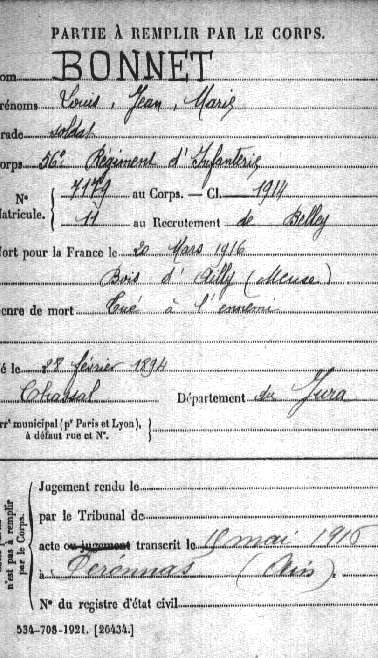 PARTIE À REMPLIR PAR LE CORPS.
om BONNET
rénoms Louis, Jean, Marie
rade soldat
orps 56e Régiment d'Infanterie
N° 7179 au Corps. — Cl. 1914
atricule. 11 au Recrutement de Belley
ort pour la France le 20 Mars 1916
Bois d'Ailly (Meuse)
enre de mort Tué à l'ennemi
é le 28 février 1894
Département du Jura
rrt municipal (pr Paris et Lyon),
à défaut rue et N°.
n'est pas à remplir
par le Corps.
Jugement rendu le
par le Tribunal de
acte ou jugement transcrit le mai 1916
à Péronnas (Ain).
N° du registre d'état civil
534-708-1921. [26434.]